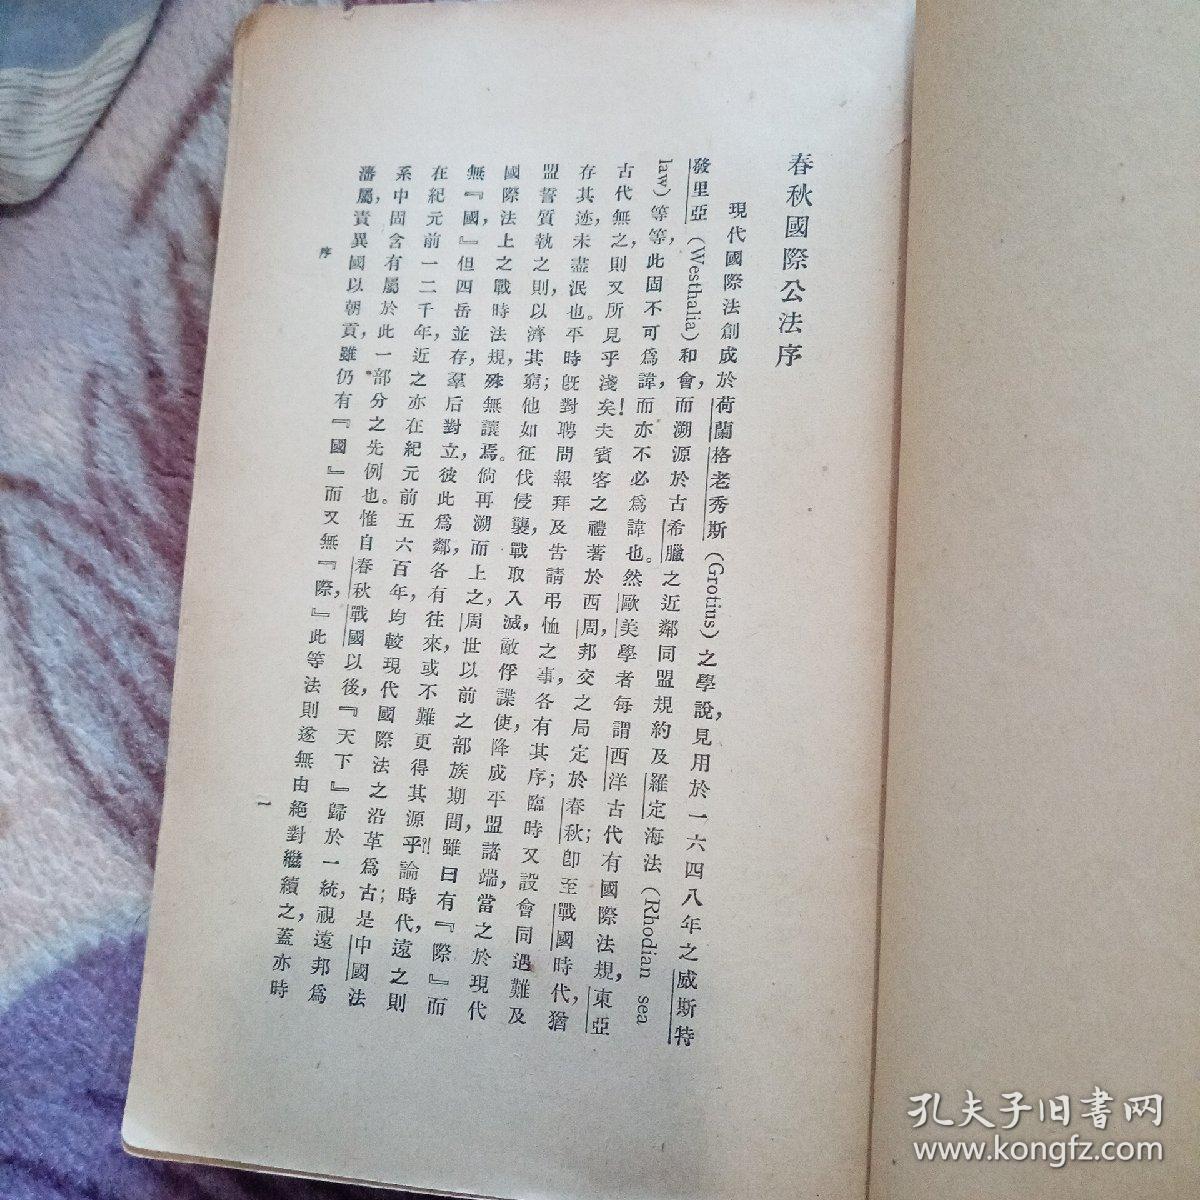 春秋國際公法序
現代國際法創成於荷蘭格老秀斯（Grotius）之學說，見用於一六四八年之威斯特
發里亞（Westhalia）和會，而溯源於古希臘之近鄰同盟規約及羅定海法（Rhodian sea
law）等等，此固不可爲諱，而亦不必爲諱也。然歐美學者每謂西洋古代有國際法規，東亞
古代無之，則又所見乎淺矣！夫賓客之禮著於西周，邦交之局定於春秋；卽至戰國時代，猶
存其迹，未盡泯也。平時旣對聘問報拜及告請弔恤之事，各有其序；臨時又設會同遇難及
盟誓質執之則，以濟其窮；他如征伐侵襲，戰取入滅，敵俘諜使，降成平盟諸端，當之於現代
國際法上之戰時法規，殊無讓焉。倘再溯而上之，周世以前之部族期間，雖曰有『際』而
無『國』，但四岳並存，羣后對立，彼此爲鄰，各有往來，或不難更得其源乎？論時代，遠之則
在紀元前一二千年，近之亦在紀元前五六百年，均較現代國際法之沿革爲古；是中國法
系中固含有屬於此一部分之先例也。惟自春秋戰國以後，『天下』歸於一統，視遠邦爲
藩屬，責異國以朝貢，雖仍有『國』而又無『際』，此等法則遂無由絕對繼續之，蓋亦時
序
一
孔夫子旧书网
www.kongfz.com